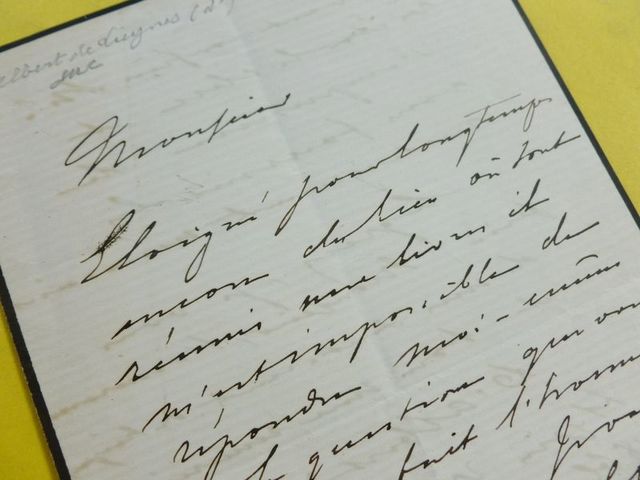 albert de Luynes (d')
duc
Monsieur
Eloigné pour longtemps
encore du lieu où sont
réunis mes livres il
m'est impossible de
répondre moi-même
la question que vous
fait l'honneur